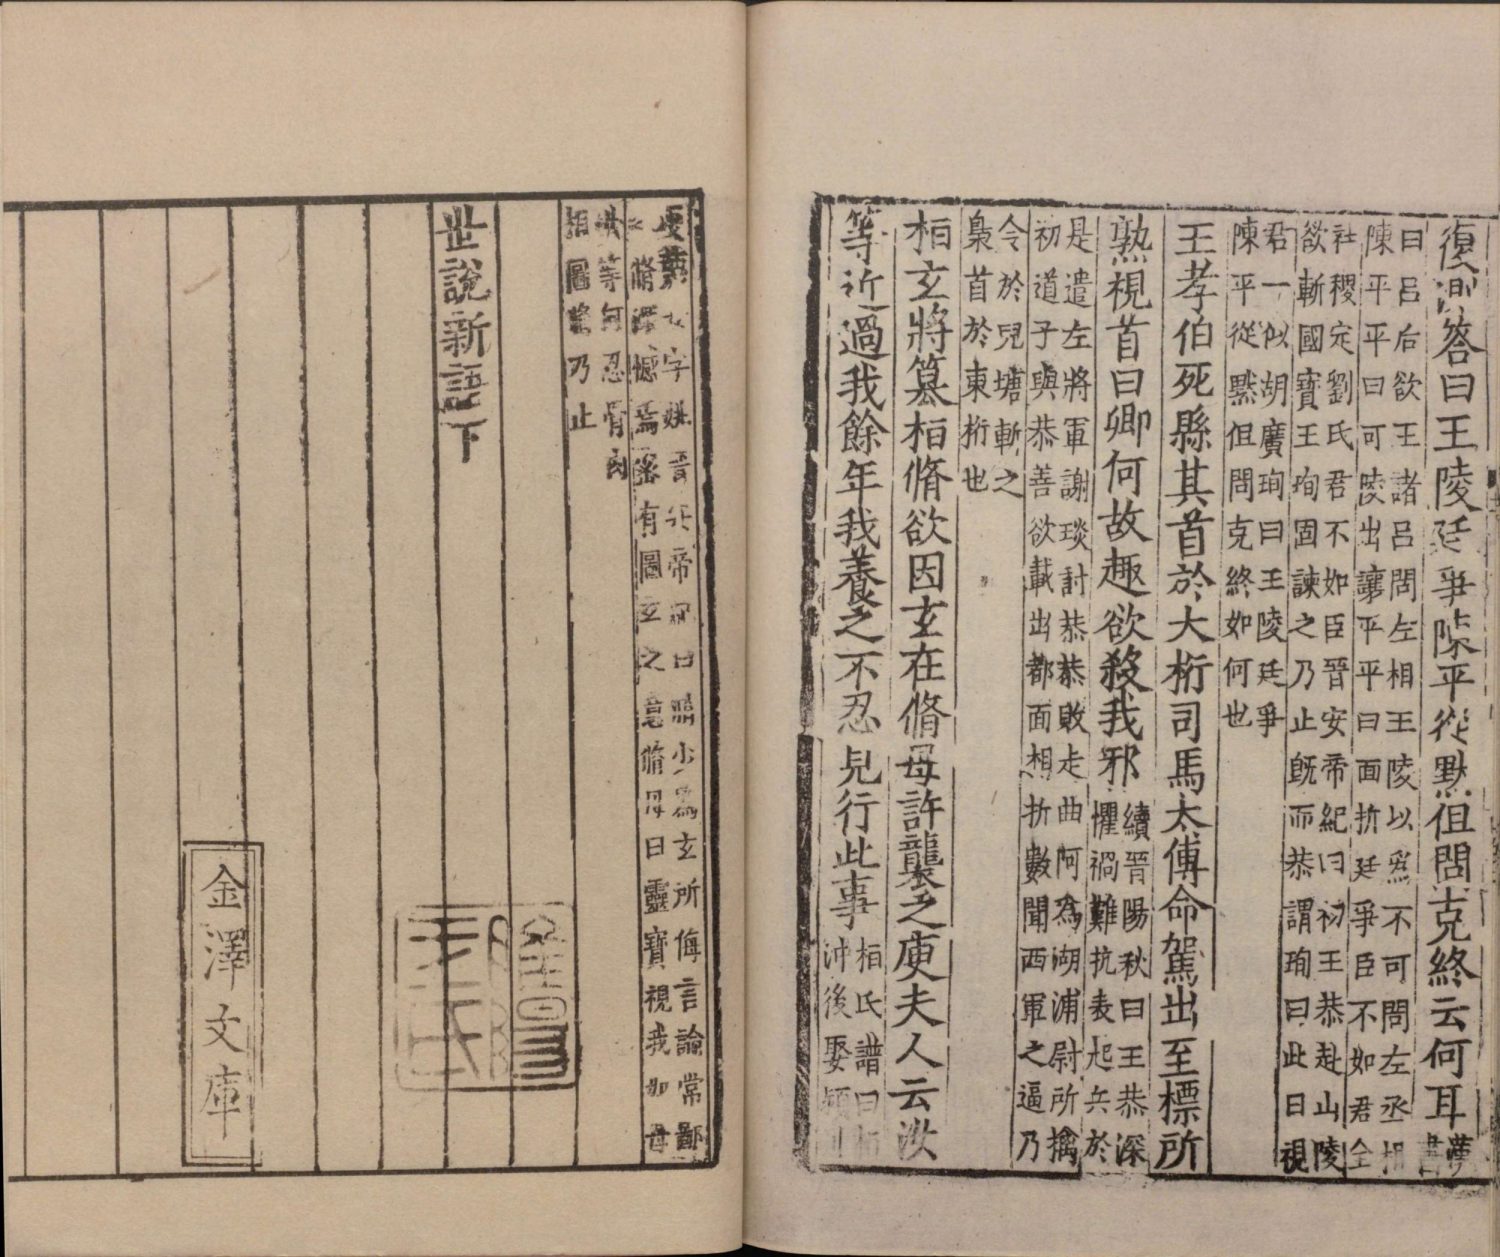 復測答曰王陵廷爭陳平從默但問克終云何耳
漢
書
曰呂后欲王諸呂問左相王陵以爲不可問左丞相
陳平平曰可陵出讓平平曰面折廷爭臣不如君全
社稷定劉氏君不如臣晉安帝紀曰初王恭赴山陵
欲斬國寶王珣固諫之乃止旣而恭謂珣曰此日視
君一似胡廣珣曰王陵廷爭
陳平從默但問克終如何也
王孝伯死縣其首於大桁司馬太傅命駕出至標所
熟視首曰卿何故趣欲殺我邪
續晉陽秋曰王恭深
懼禍難抗表起兵於
是遣左將軍謝琰討恭恭敗走曲阿爲湖浦尉所擒
初道子與恭善欲載出都面相折數聞西軍之逼乃
令於兒塘斬之
梟首於東桁也
桓玄將篡桓脩欲因玄在脩母許襲之庾夫人云汝
等近過我餘年我養之不忍見行此事
桓氏譜曰桓
沖後娶潁川
庾蔑女字姚晉安帝紀曰脩少爲玄所侮言論常鄙
之脩深憾焉密有圖玄之意脩母曰靈寶視我如母
汝等何忍骨肉
相圖脩乃止
世說新語下
金澤文庫